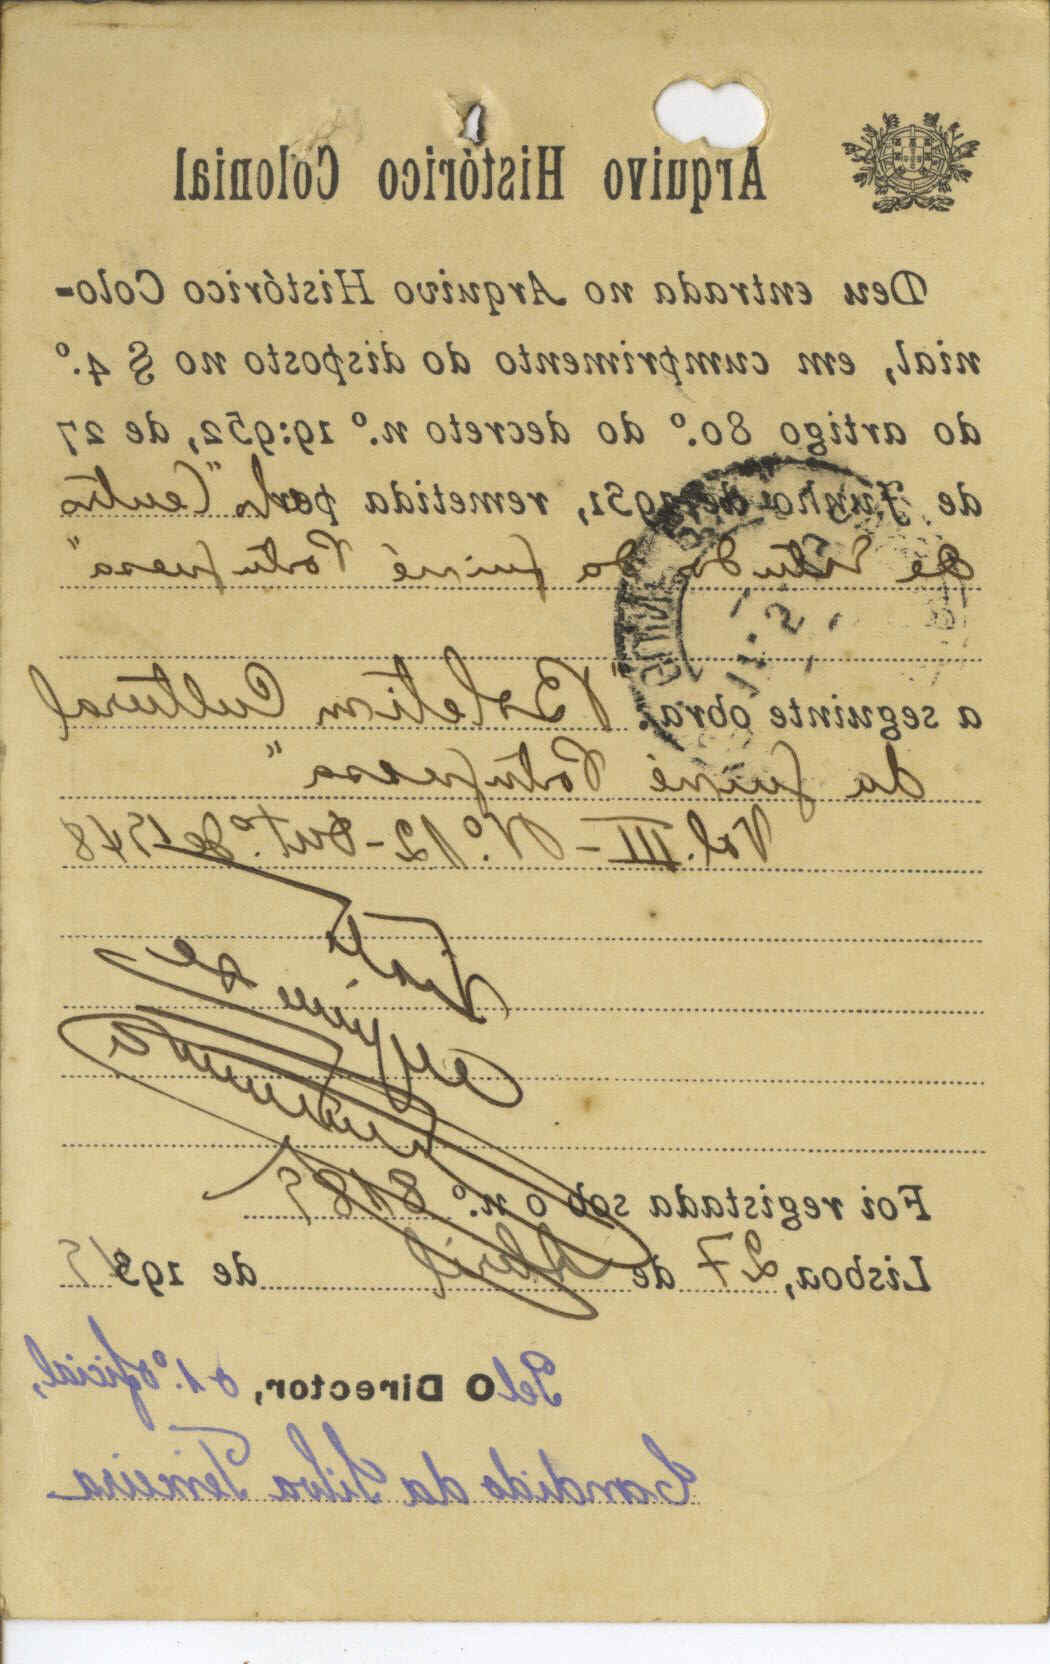 Arquivo Histórico Colonial
Deu entrada no Arquivo Histórico Colo-
nial, em cumprimento do disposto no § 4.º
do artigo 80.º do decreto n.º 19:952, de 27
de Junho de 1931, remetida pelo "Centro
de Estudos da Guiné Portuguesa"
a seguinte obra: "Boletim Cultural
da Guiné Portuguesa"
Vol. III - N.º 12 - Out.º de 1948
Visto
Foi registada sob o n.º
Lisboa, 27 de Abril de 19
Pelo Director, o 1.º oficial,
Candido da Silva Teixeira